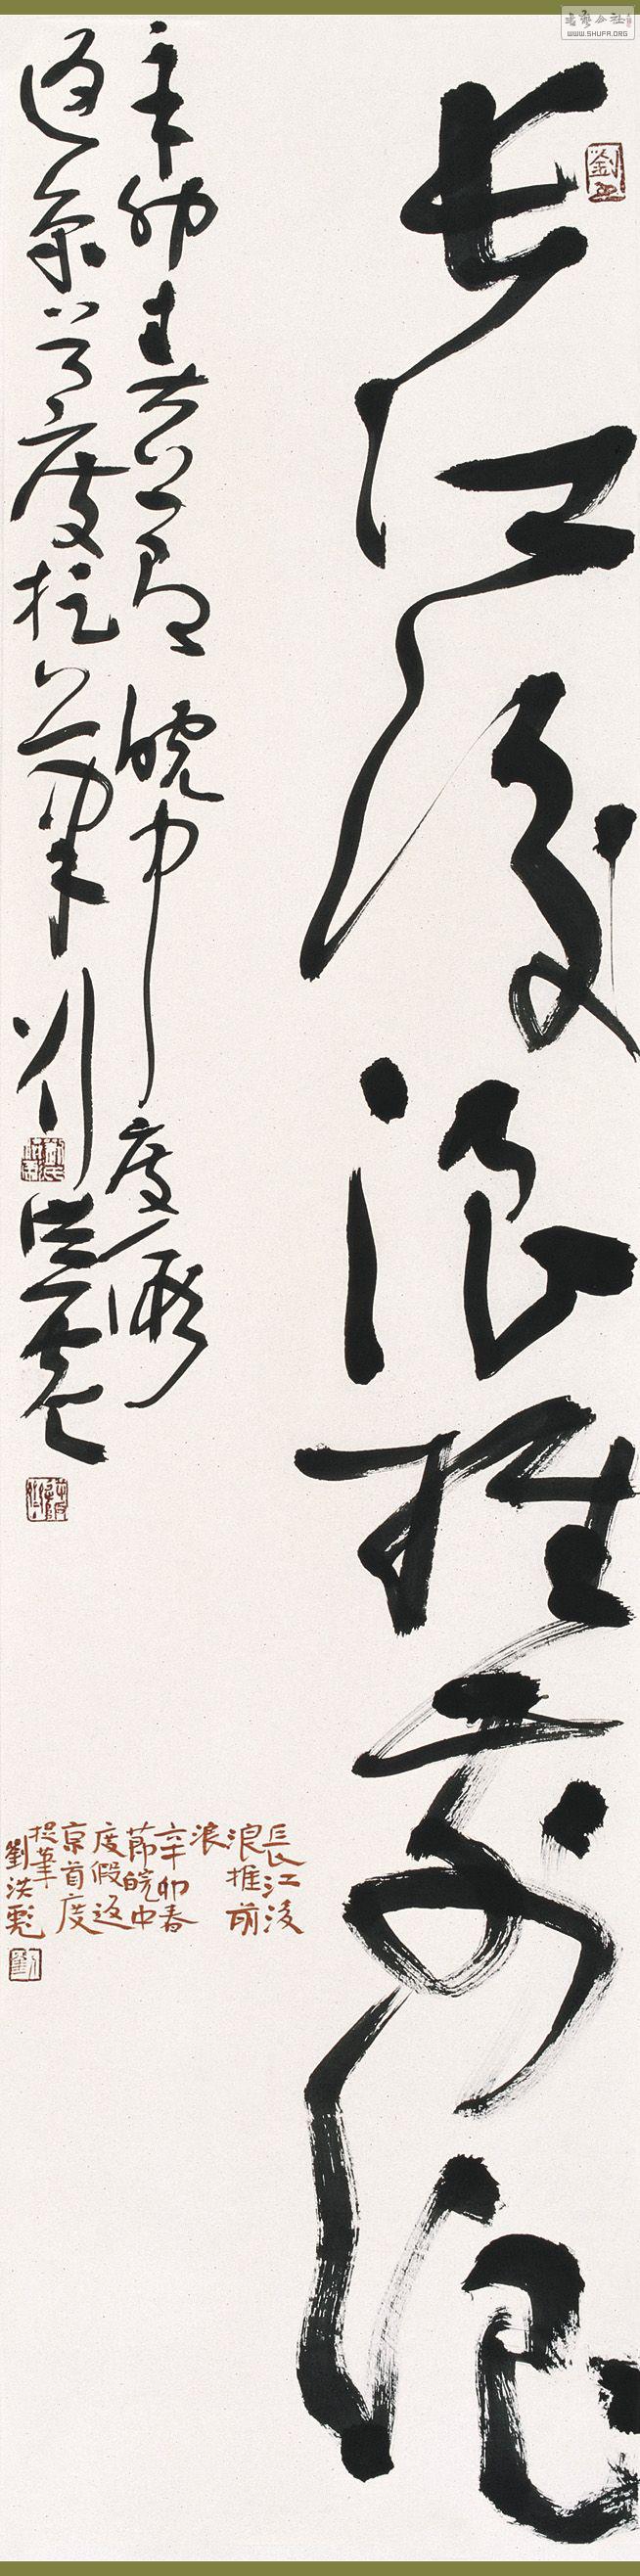 書藝公社
WWW.SHUFA.ORG
长江後浪推前浪
辛卯春節皖中度假
返京首度提筆刘洪彪
長江後
浪推前
浪
辛卯春
節皖中
度假返
京首度
提筆
劉洪彪
劉